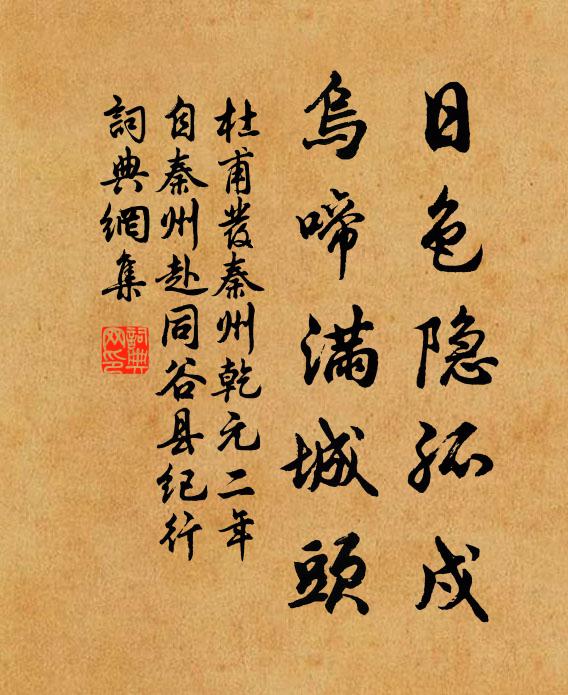 日色隐孤戍
烏啼滿城頭
杜甫發秦州乾元二年
自秦州赴同谷县纪行
詞典網集
詞典网印